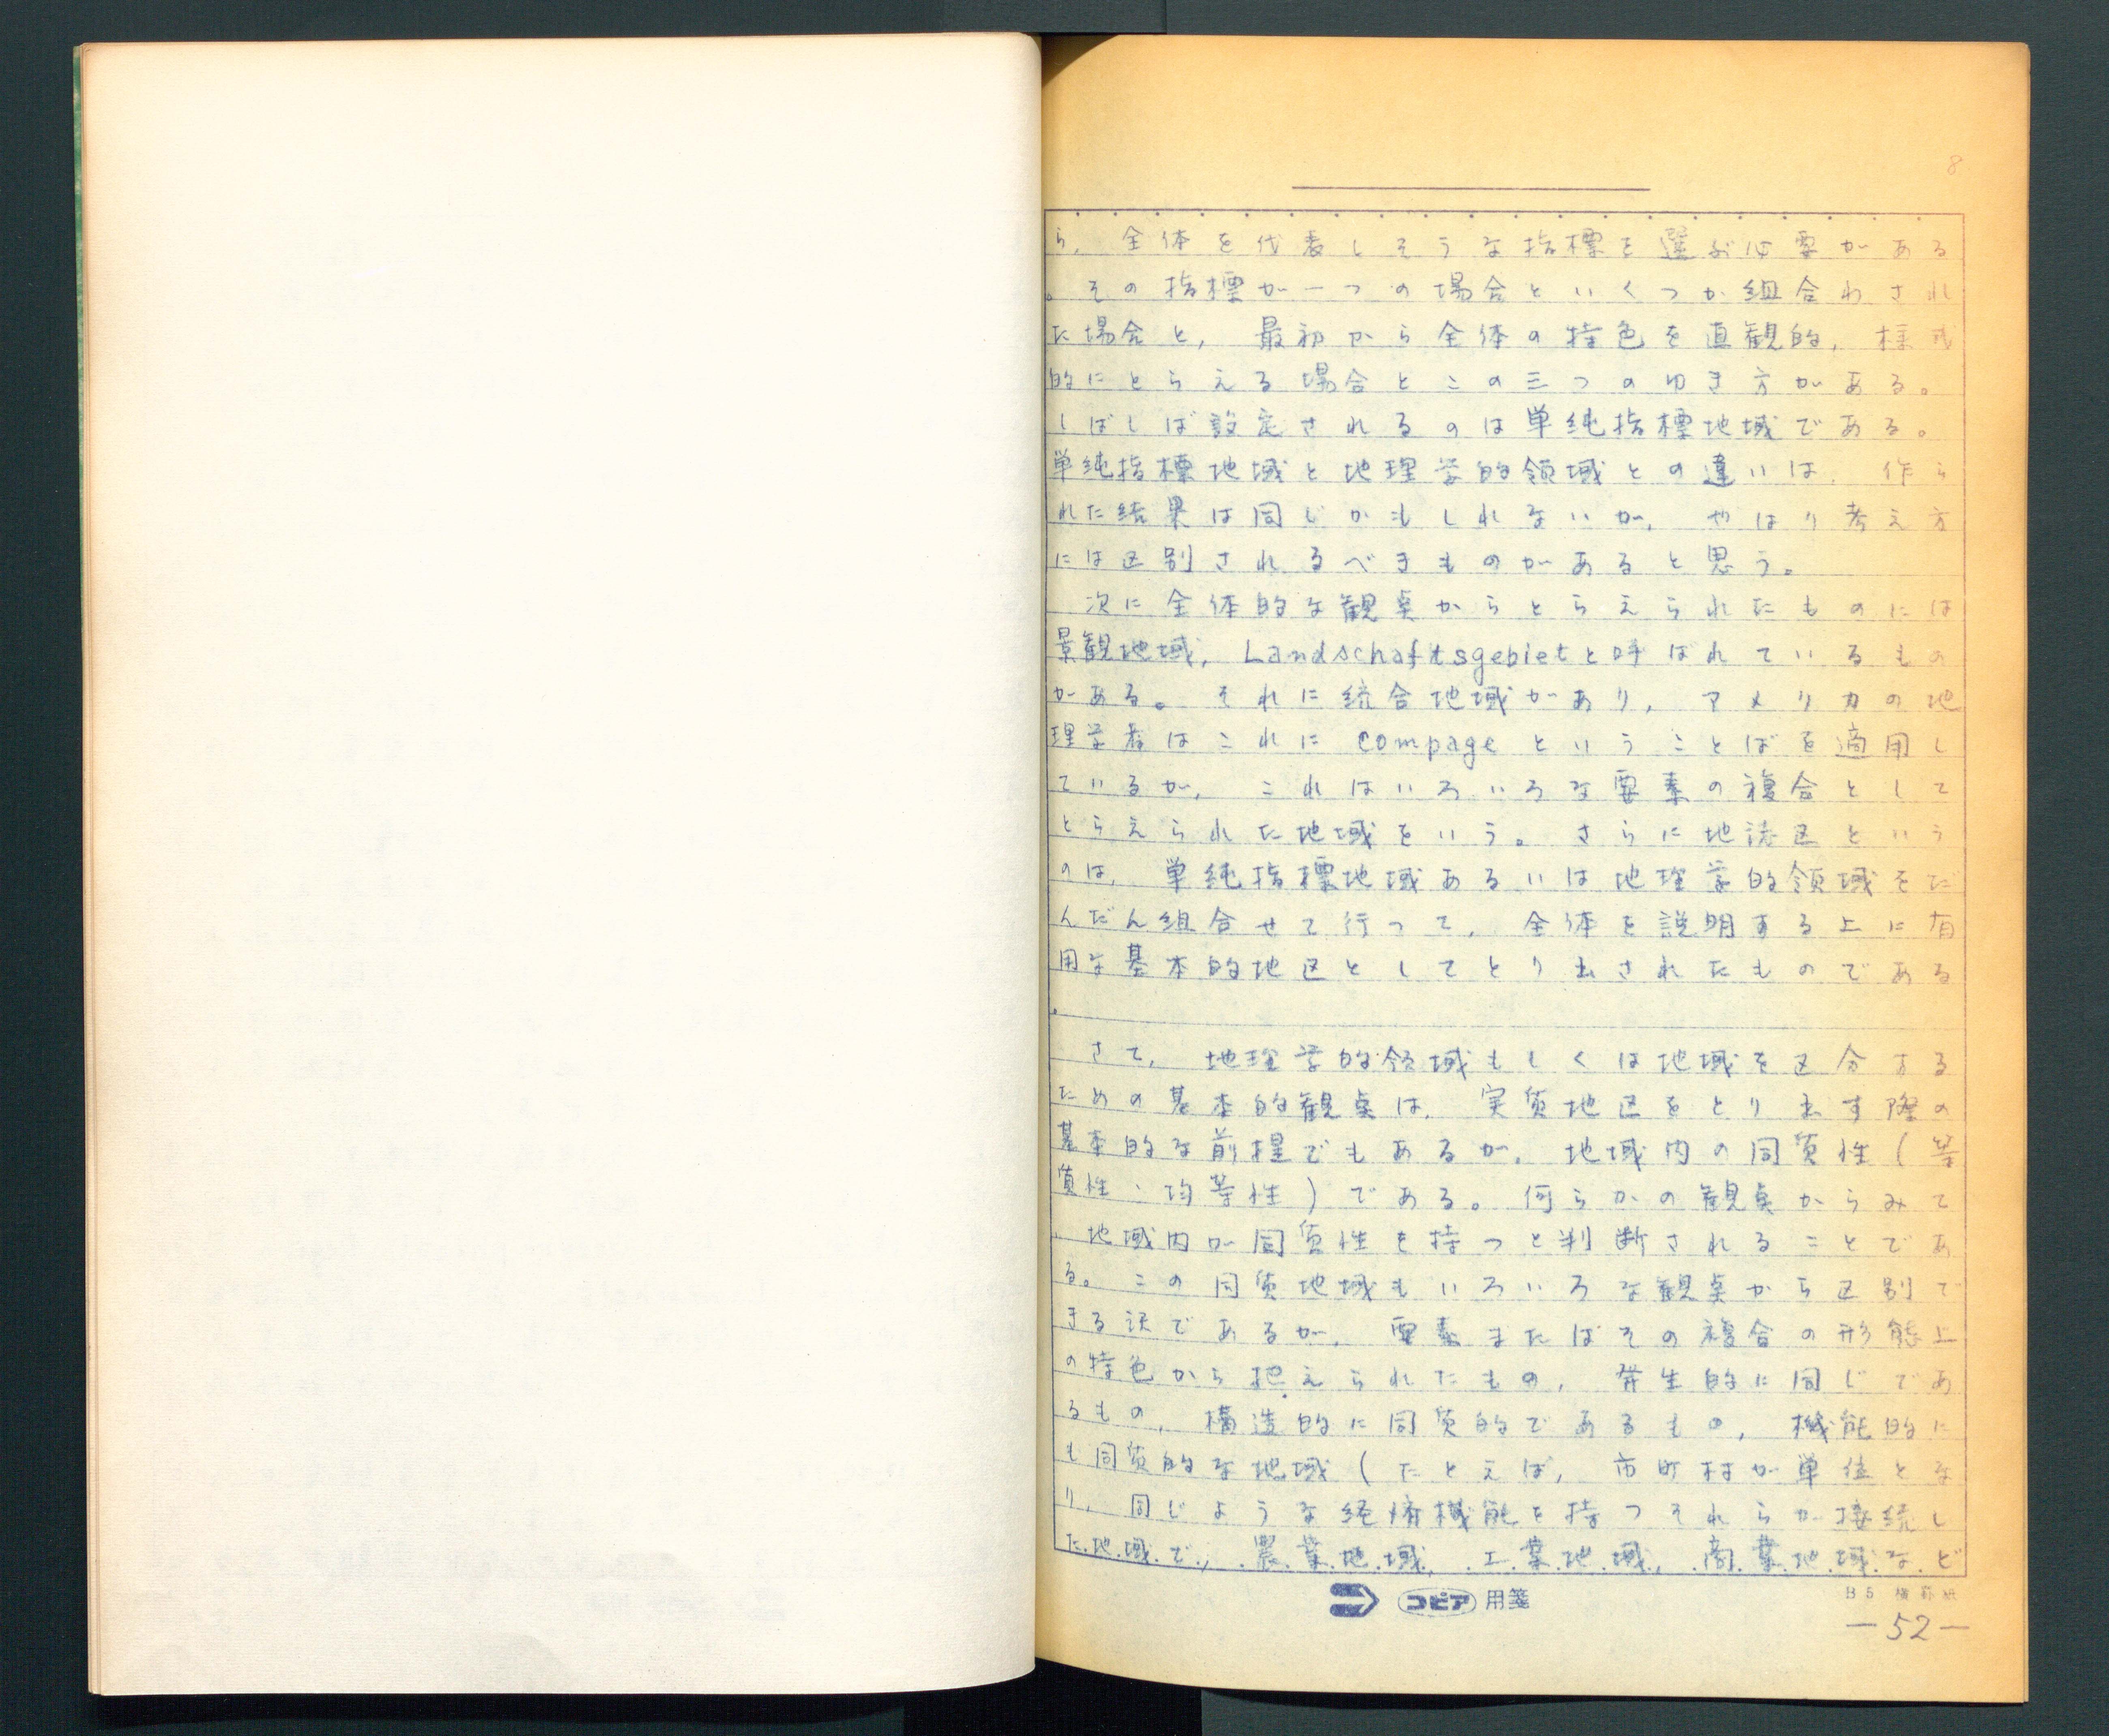 8
ら，全体を代表しそうな指標を選ぶ必要がある
。その指標が一つの場合といくつか組合わされ
た場合と，最初から全体の特色を直観的，様式
的にとらえる場合とこの三つのゆき方がある。
しばしば設定されるのは単純指標地域である。
単純指標地域と地理学的領域との違いは，作ら
れた結果は同じかもしれないが，やはり考え方
には区別されるべきものがあると思う。
次に全体的な観点からとらえられたものには
景観地域，Landschaftsgebietと呼ばれているもの
がある。それに統合地域があり，アメリカの地
理学者はこれに compage ということばを適用し
ているが，これはいろいろな要素の複合として
とらえられた地域をいう。さらに地誌区という
のは，単純指標地域あるいは地理学的領域をだ
んだん組合せて行って，全体を説明する上に有
用な基本的地区としてとり出されたものである
。
さて，地理学的領域もしくは地域を区分する
ための基本的観点は，実質地区をとり出す際の
基本的な前提でもあるが，地域内の同質性（等
質性・均等性）である。何らかの観点からみて
，地域内が同質性を持つと判断されることであ
る。この同質地域もいろいろな観点から区別で
きる訳であるが，要素またはその複合の形態上
の特色から把えられたもの，発生的に同じであ
るもの，構造的に同質的であるもの，機能的に
も同質的な地域（たとえば，市町村が単位とな
り，同じような経済機能を持つそれらが接続し
た地域で，農業地域，工業地域，商業地域など
コピア 用箋
B5 横罫紙
—52—